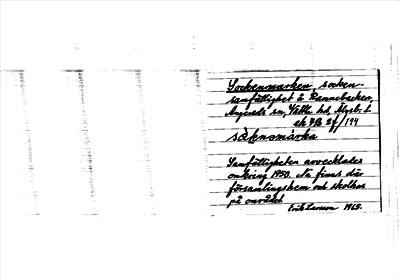 Sockenmarken, socken-
samfällighet å Rannebacken,
Angereds sn, Vättle hd, Älvsb. l
ek 7B 2f/194
såknəmàrka
Samfälligheten avvecklades
omkring 1950. Nu finns där
församlingshem och skolhus
på området
Erik Larsson 1965.